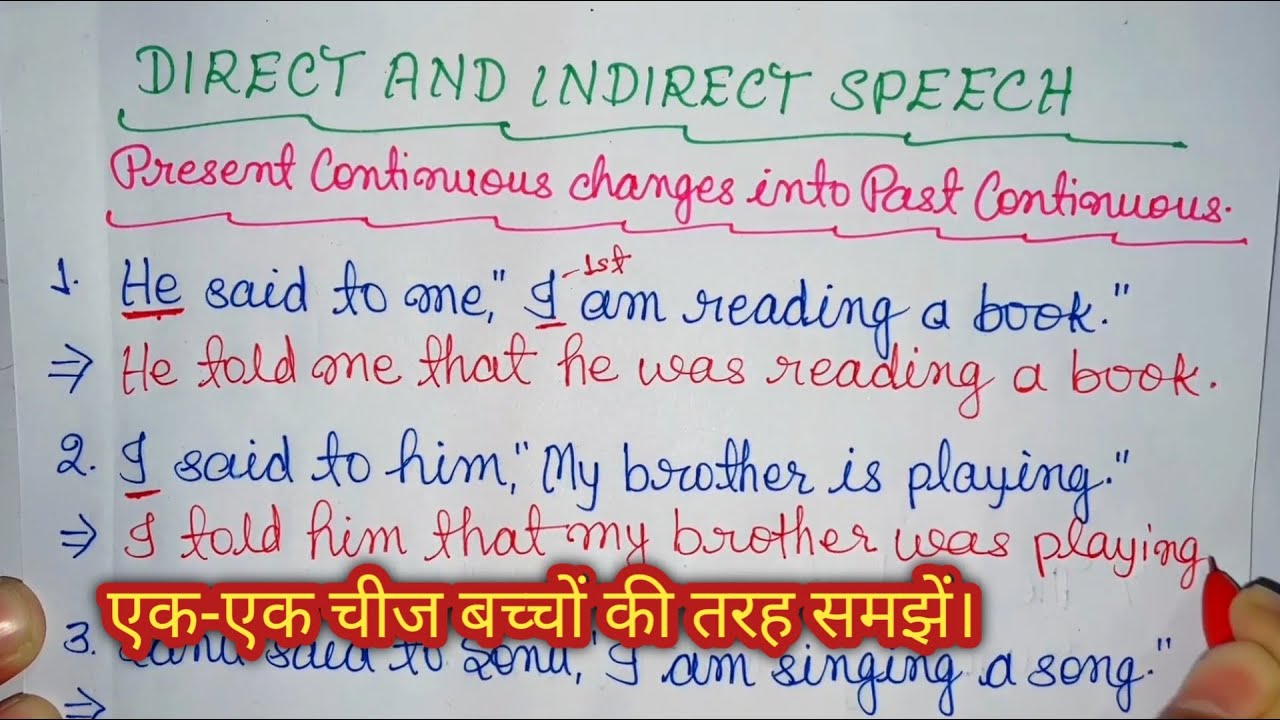 DIRECT AND INDIRECT SPEECH
Present Continuous changes into Past Continuous.
-1st
1. He said to me," I am reading a book."
⇒ He told me that he was reading a book.
2. I said to him," My brother is playing."
⇒ I told him that my brother was playing.
एक-एक चीज बच्चों की तरह समझें।
3. said to Sonu," I am singing a song."
⇒